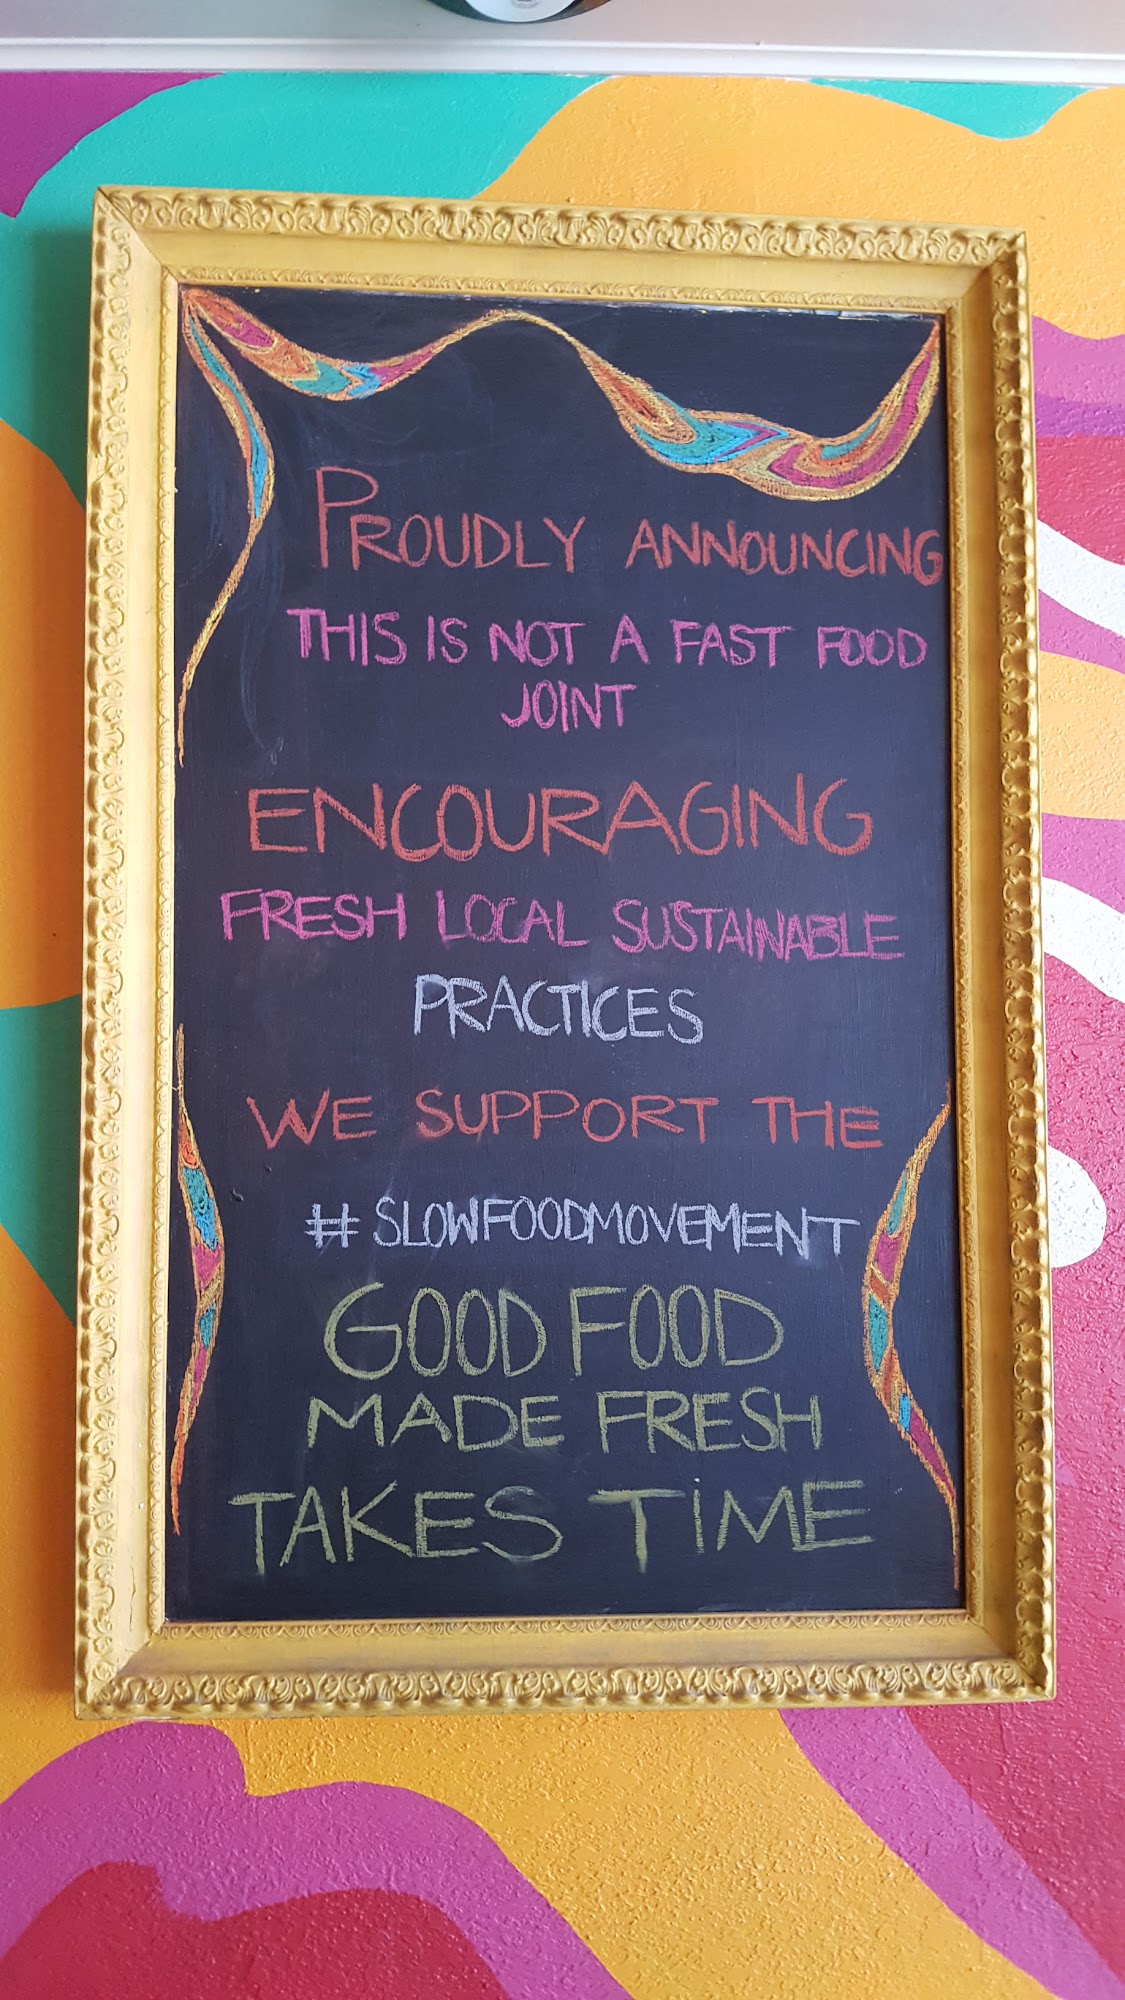 PROUDLY ANNOUNCING
THIS IS NOT A FAST FOOD
JOINT
ENCOURAGING
FRESH LOCAL SUSTAINABLE
PRACTICES
WE SUPPORT THE
#SLOWFOODMOVEMENT
GOOD FOOD
MADE FRESH
TAKES TiME